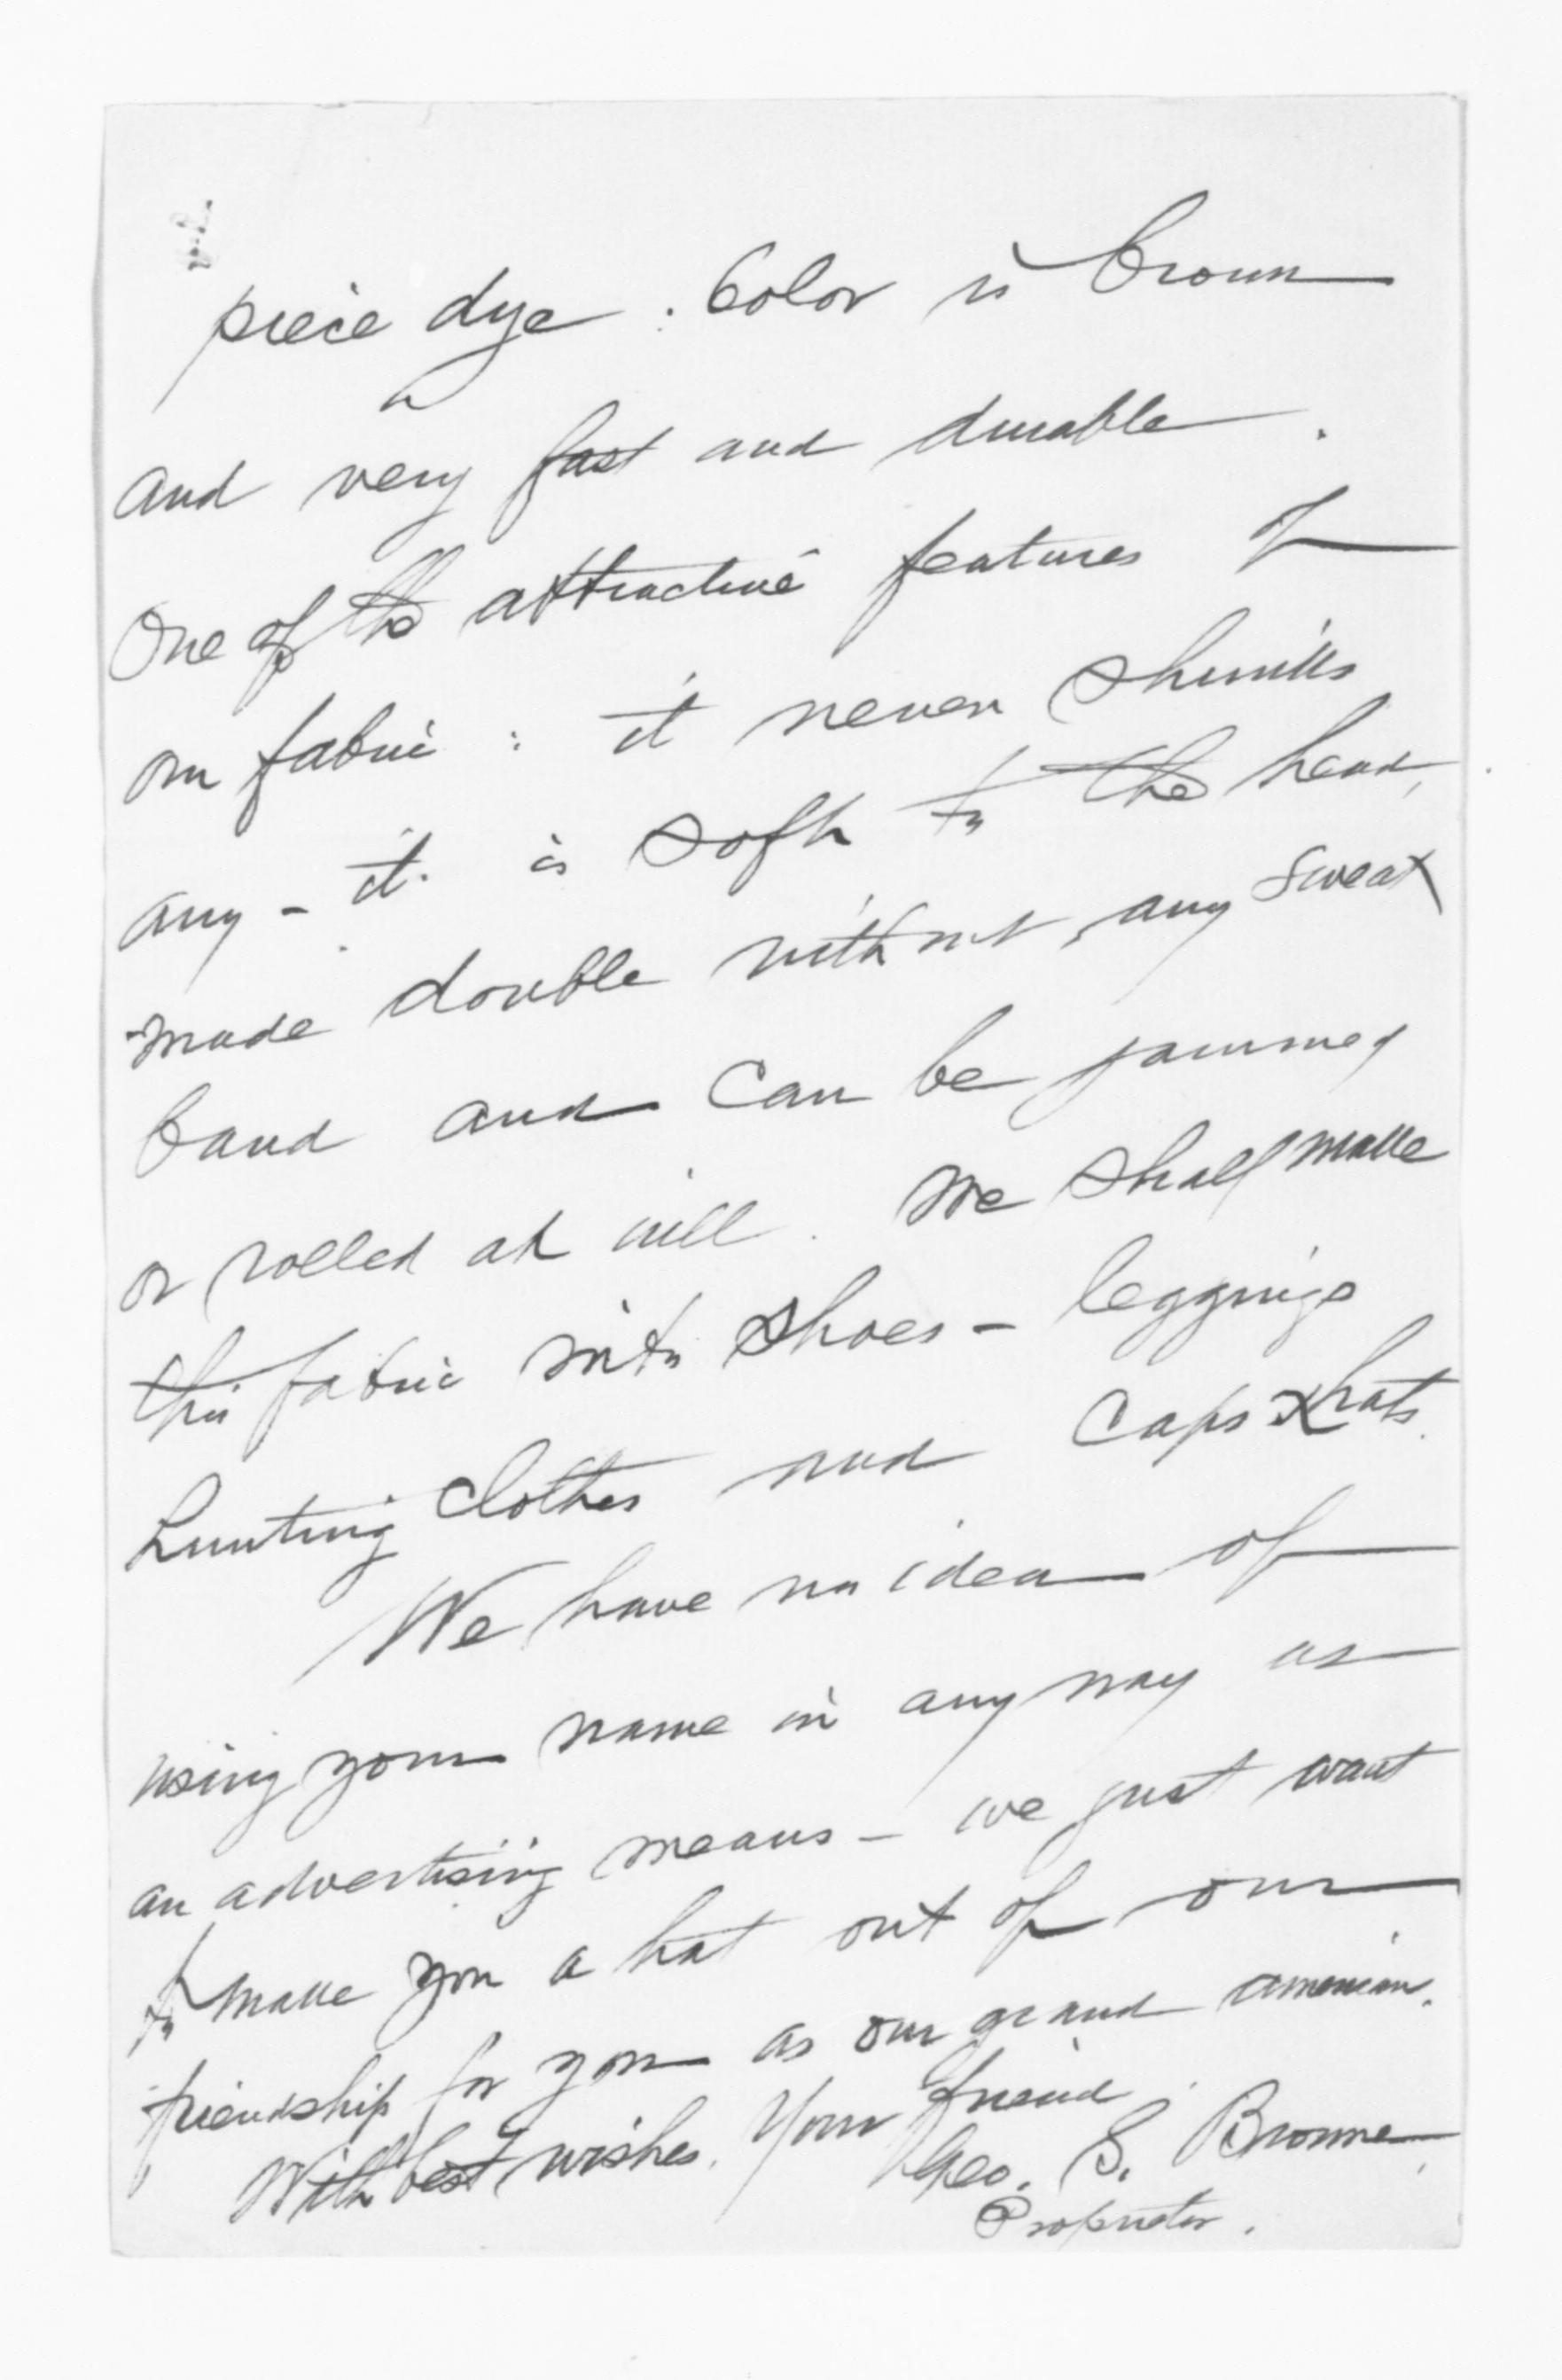 piece dye. Color is brown
and very fast and durable.
One of the attractive features of
our fabric: it never shrinks
any - it is soft to the head,
made double without any sweat
band and can be jammed
or rolled at will. We shall make
this fabric into shoes - leggings
hunting clothes and caps & hats.
We have no idea of
using your name in any way as
an advertising means - we just want
to make you a hat out of our
friendship for you as our grand american.
With best wishes. Your friend
Geo. S. Browne
Proprietor.